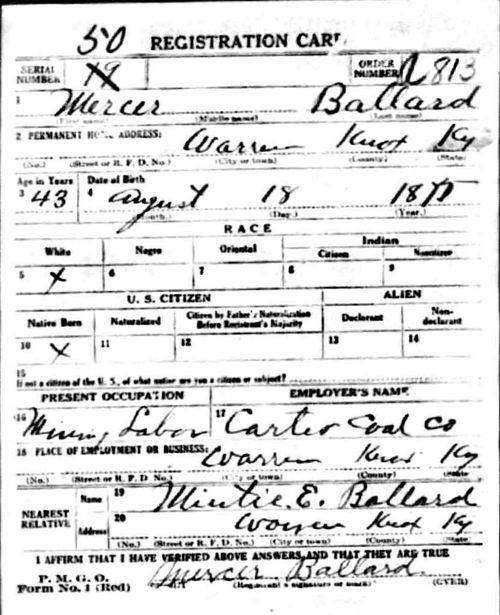 50 REGISTRATION CARD
SERIAL NUMBER 79 ORDER NUMBER 813
1 Mercer Ballard
(First name) (Middle name) (Last name)
2 PERMANENT HOME ADDRESS: Warren Knox Ky
(No.) (Street or R. F. D. No.) (City or town) (County) (State)
Age in Years Date of Birth
3 43 4 August 18 1875
(Month.) (Day.) (Year.)
RACE
White Negro Oriental Indian
Citizen Noncitizen
5 X 6 7 8 9
U. S. CITIZEN ALIEN
Native Born Naturalized Citizen by Father's Naturalization Before Registrant's Majority Declarant Non-declarant
10 X 11 12 13 14
15
If not a citizen of the U. S., of what nation are you a citizen or subject?
PRESENT OCCUPATION EMPLOYER'S NAME
16 Mining Labor 17 Carter Coal Co
18 PLACE OF EMPLOYMENT OR BUSINESS: Warren Knox Ky
(No.) (Street or R. F. D. No.) (City or town) (County) (State)
NEAREST RELATIVE Name 19 Mintie. E. Ballard
Address 20 Warren Knox Ky
(No.) (Street or R. F. D. No.) (City or town) (County) (State)
I AFFIRM THAT I HAVE VERIFIED ABOVE ANSWERS AND THAT THEY ARE TRUE
P. M. G. O.
Form No. 1 (Red) Mercer Ballard
(Registrant's signature or mark) (OVER)